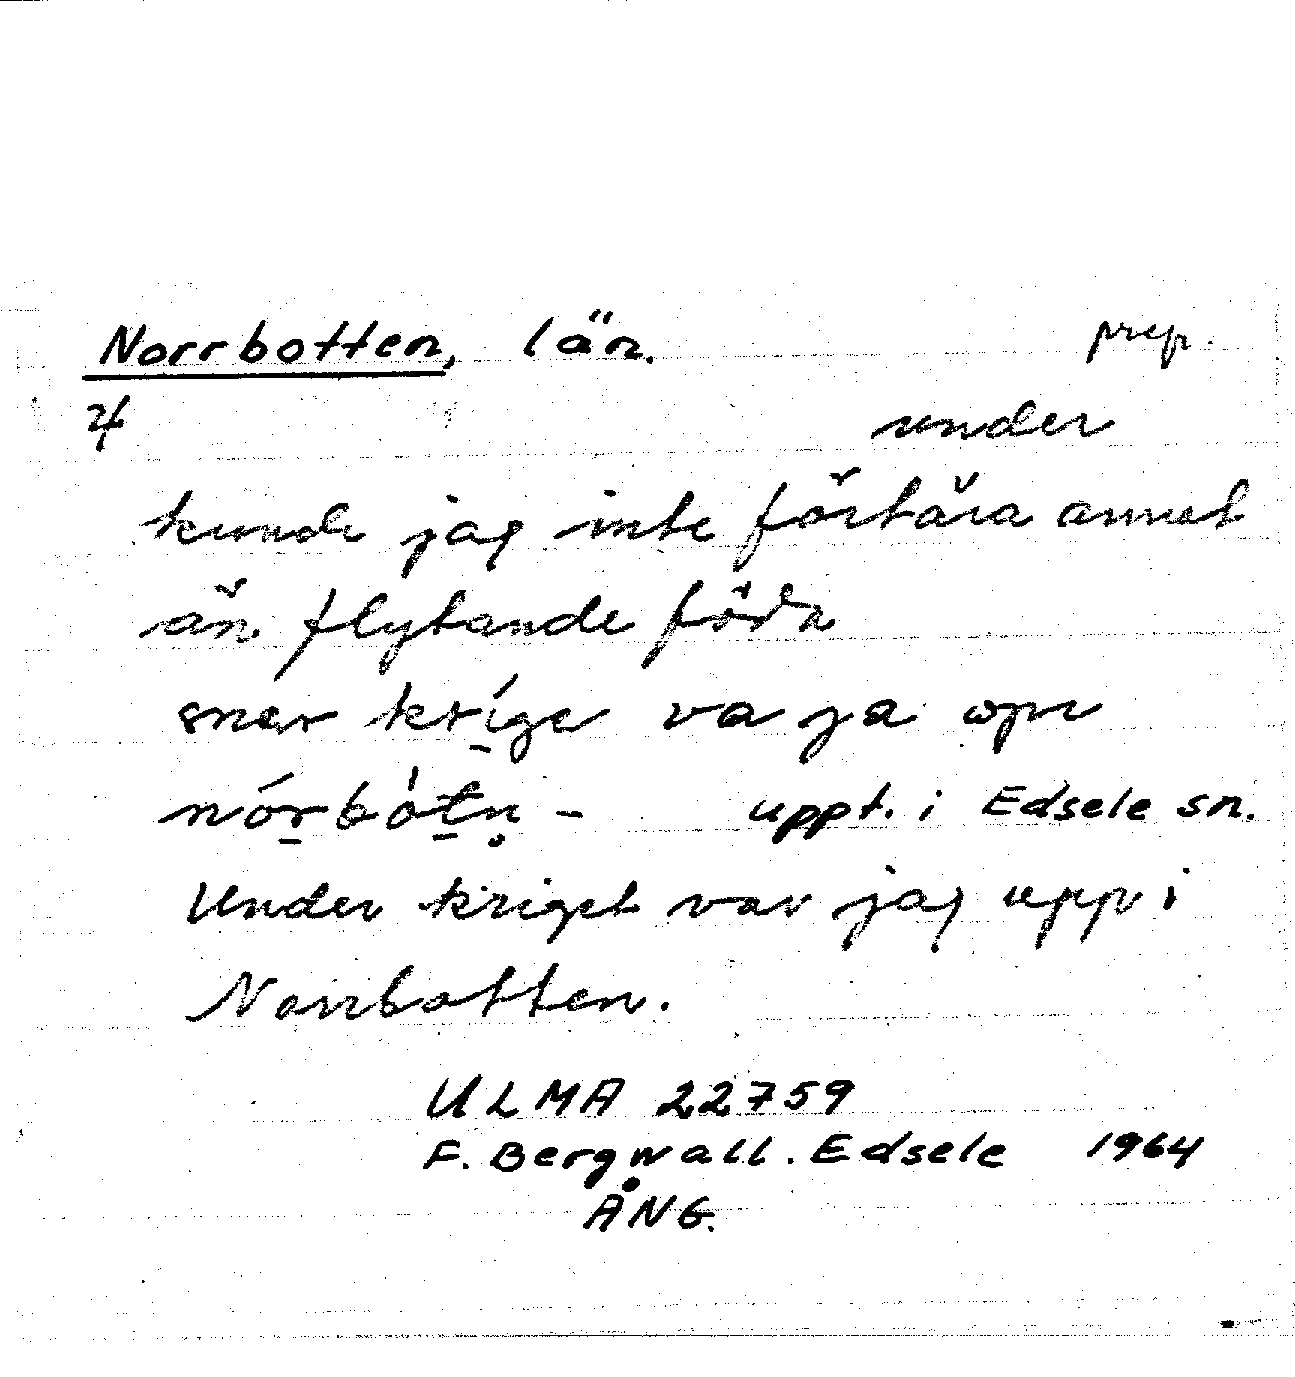 Norrbotten, län. prep.
4
under
kunde jag inte förtära annat
än flytande föda
krige va ja
nórbótn - uppt. i Edsele sn.
Under kriget var jag upp i
Norrbotten.
ULMA 22759
F. Bergwall. Edsele 1964
ÅNG.